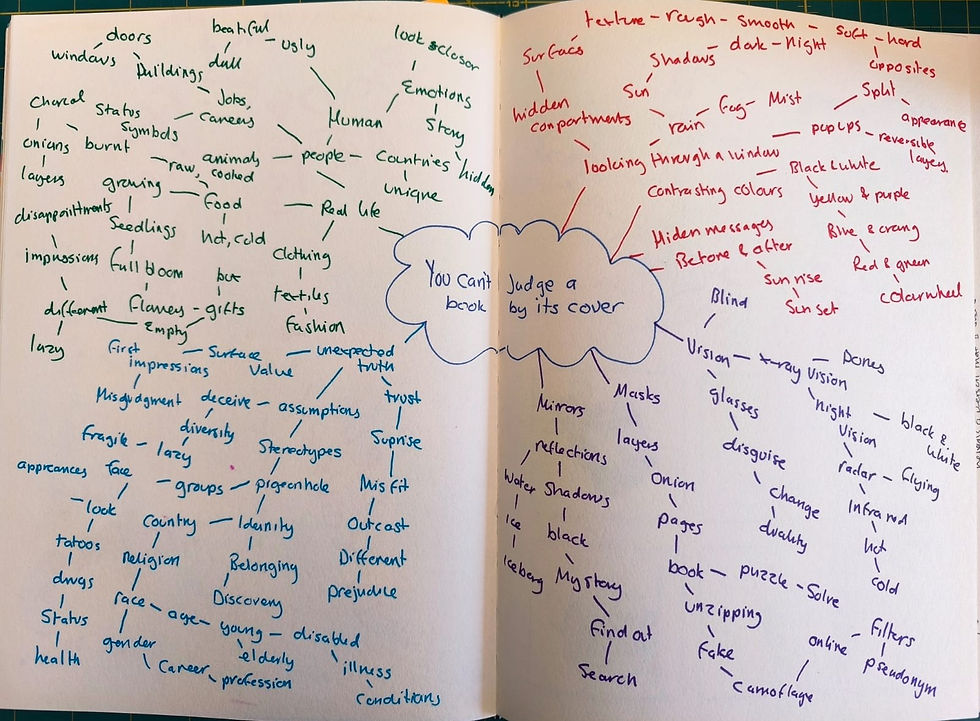 doors
windows
buildings
beatiful
dull
usly
look closer
Emotions
Story
hidden
Human
Jobs,
careers
Status
Symbols
Charcol
onions
burnt
layers
raw,
cooked
animals
people
Countries
unique
growing
food
Real life
disappointments
Seedlings
hot, cold
Clothing
impressions
full bloom
but
textiles
different
flowers
gifts
fashion
Empty
lazy
You can't Judge a
book by its cover
texture - rough - smooth - soft - hard
opposites
Surfaces
Shadows - dark - night
Sun
hidden
compartments
rain
fog - Mist
Split
appearance
popups - reversible
layers
looking through a window
Black & white
contrasting colours
Yellow & purple
Hiden messages
Blue & orang
Before & after
Red & green
Sunrise
colourwheel
Sunset
First
impressions
Surface
Value
unexpected
truth
Misjudgment
deceive - assumptions
trust
diversity
fragile - lazy
Stereotypes
Suprise
apprearances
face
groups - pigeonhole
Misfit
look
Country - Idenity
Outcast
tatoos
religion
Belonging
Different
drugs
Discovery
prejudice
race - age - young - disabled
Status
gender
elderly
health
Career
profession
illness
conditions
Blind
Vision - x-ray vision - bones
glasses
night
vision
black &
white
disguise
radar - flying
change
Infrared
duality
hot
cold
Masks
layers
Onion
pages
book - puzzle - Solve
unzipping
fake
camoflage
online - filters
pseudonym
Mirrors
reflections
water
Shadows
Ice
black
Iceberg
Mystory
find out
Search